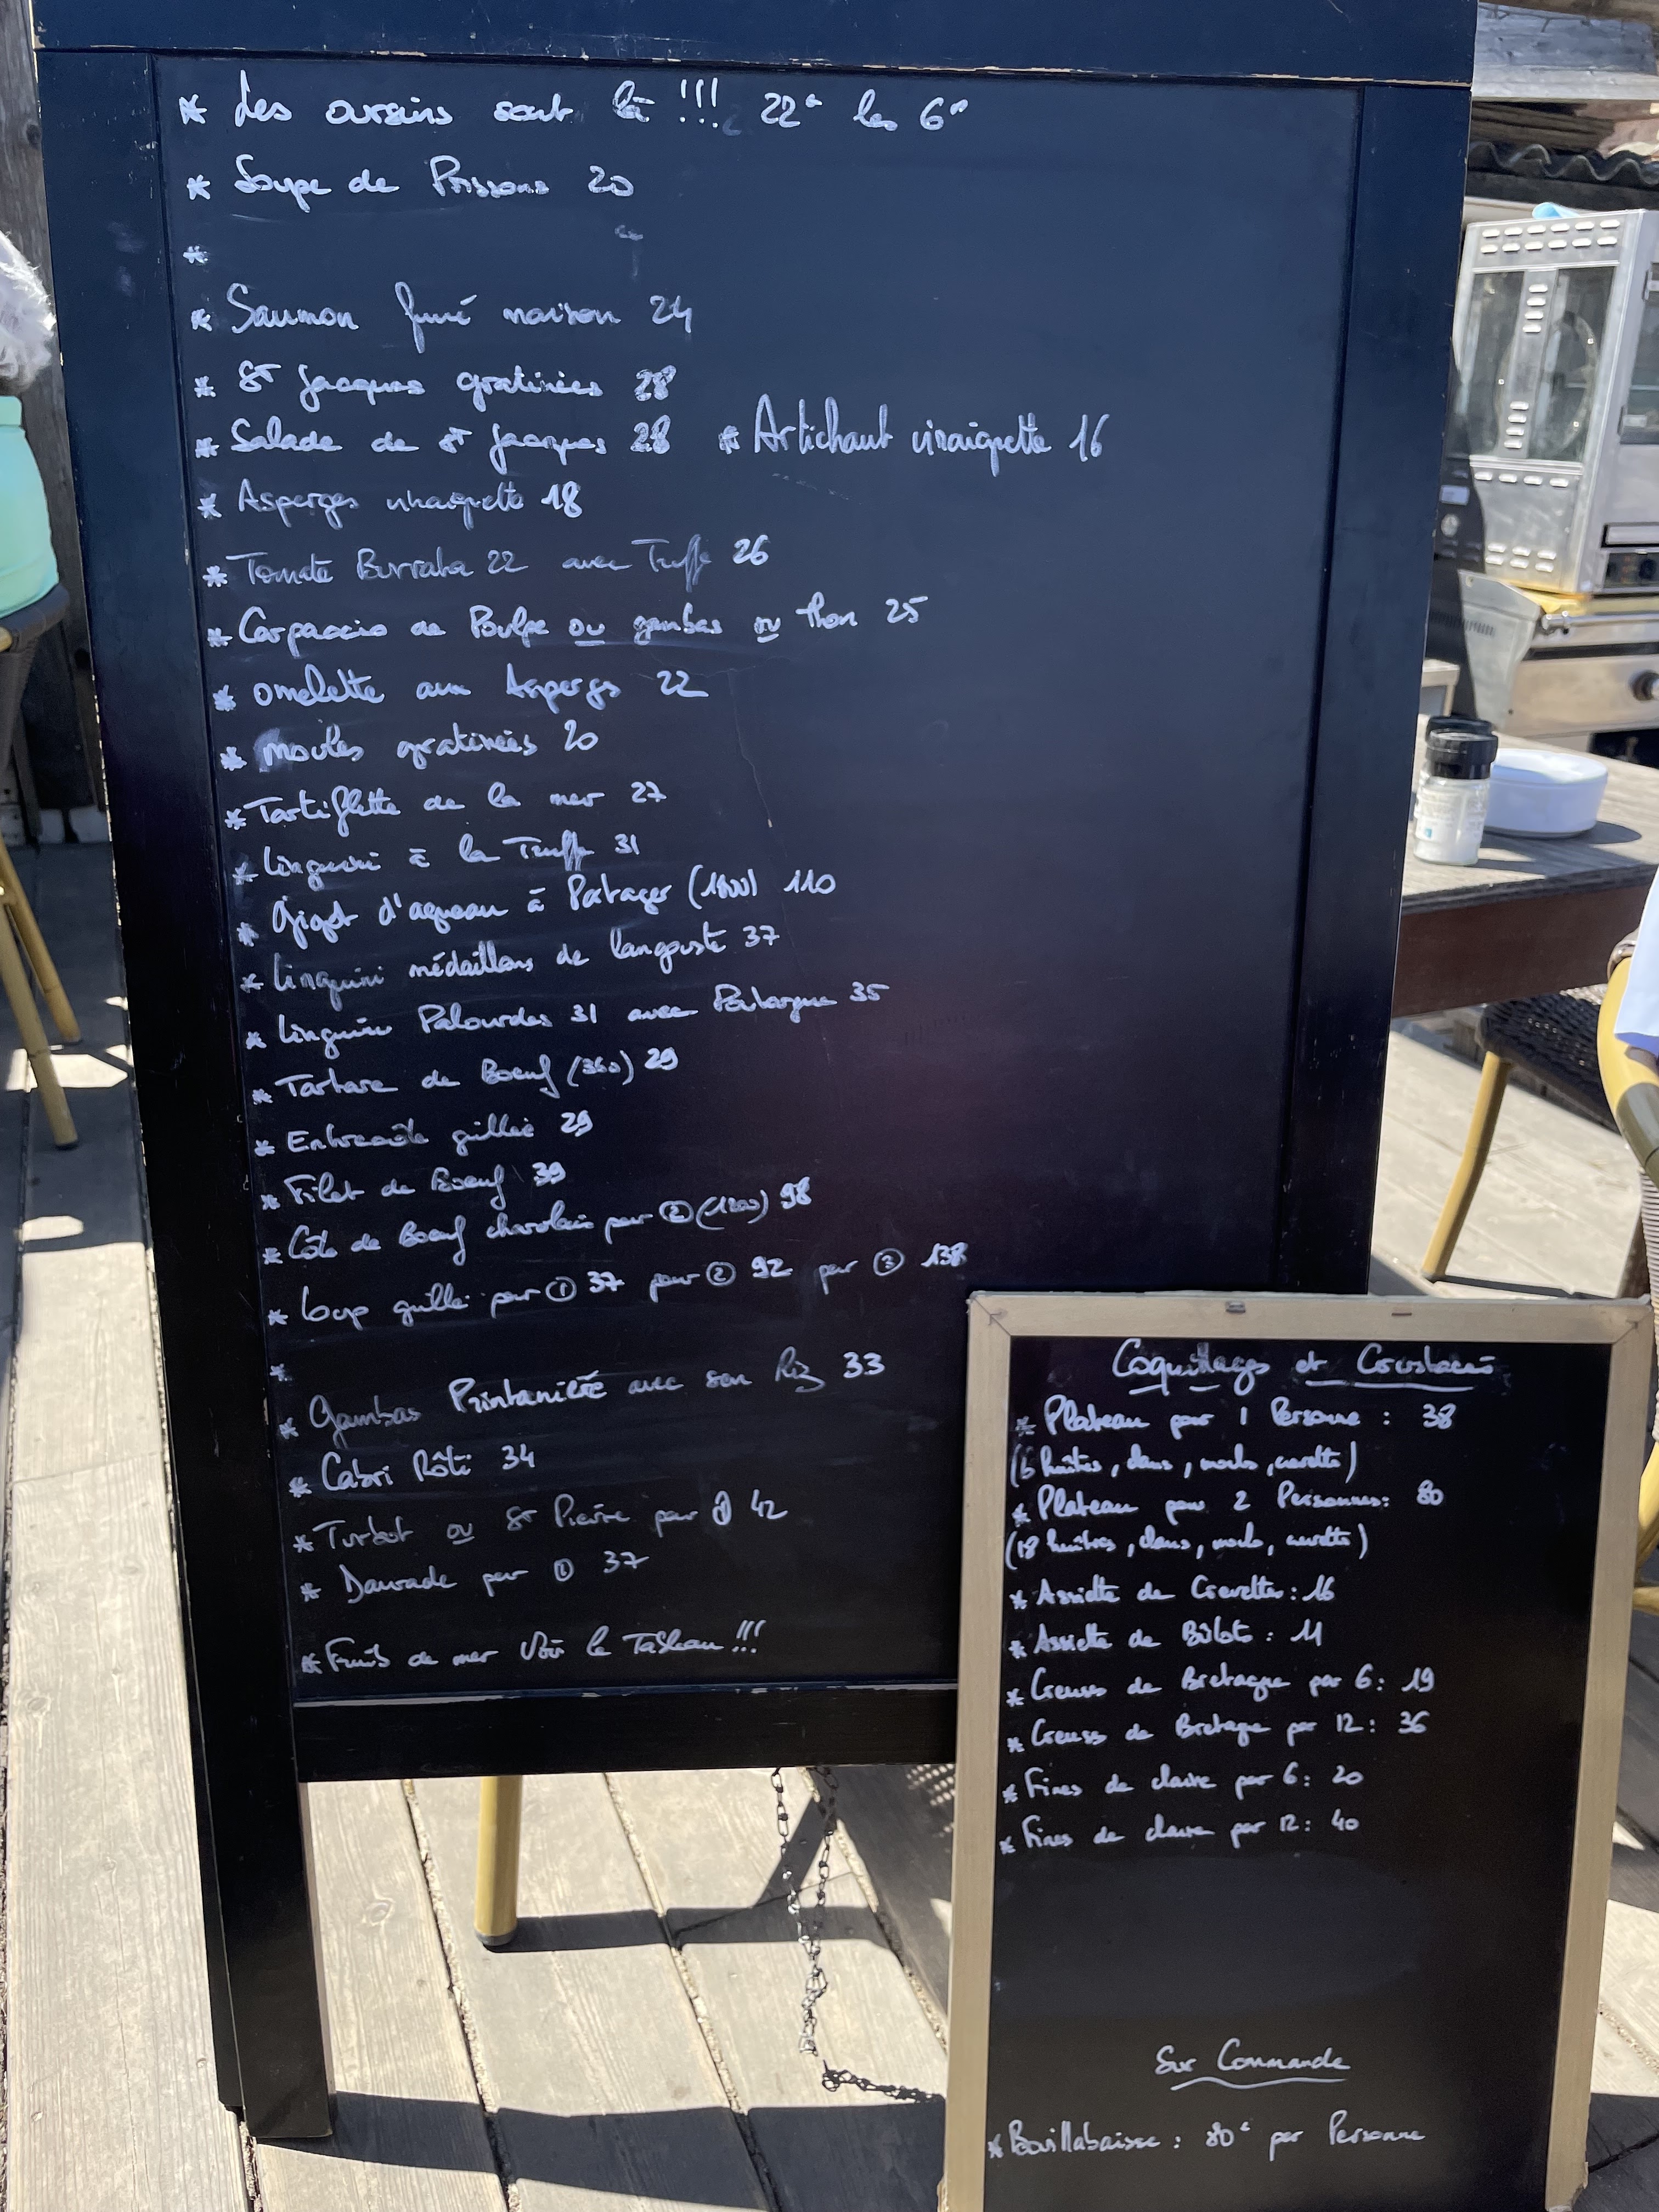 * Les oursins sont là !!! 22€ les 6
* Soupe de Poissons 20
*
* Saumon fumé maison 24
* St Jacques gratinées 28
* Salade de St Jacques 28 * Artichaut vinaigrette 16
* Asperges vinaigrette 18
* Tomate Burrata 22 avec Truffe 26
* Carpaccio de Poulpe ou gambas ou thon 25
* omelette aux Asperges 22
* moules gratinées 20
* Tartiflette de la mer 27
* Linguini à la Truffe 31
* Gigot d'agneau à Partager 110
* Linguini médaillons de langouste 37
* Linguini Palourdes 31 avec Poutargue 35
* Tartare de Boeuf (360) 29
* Entrecôte grillée 29
* Filet de Boeuf 39
* Côte de Boeuf charolais pour 2 (1200) 98
* Loup grillé pour 1 37 pour 2 92 pour 3 138
*
* Gambas Printanière avec son Riz 33
* Cabri Rôti 34
* Turbot ou St Pierre pour 1 42
* Daurade pour 1 37
* Fruits de mer Voir le Tableau !!!
Coquillages et Crustacés
* Plateau pour 1 Personne : 38
(6 huîtres, clams, moules, crevettes)
* Plateau pour 2 Personnes : 80
(18 huîtres, clams, moules, crevettes)
* Assiette de Crevettes : 16
* Assiette de Bulots : 11
* Creuses de Bretagne par 6 : 19
* Creuses de Bretagne par 12 : 36
* Fines de claire par 6 : 20
* Fines de claire par 12 : 40
Sur Commande
* Bouillabaisse : 80€ par Personne